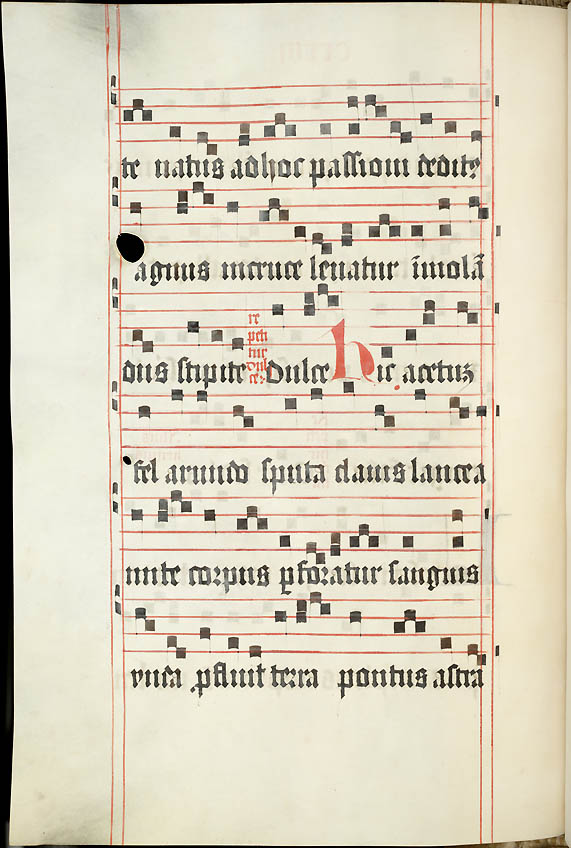 te natus ad hoc passioni dedit9
agnus in cruce levatur īmolā
dus stipite
re
peti
tur
dulce
ce
Dulce hic acetuȝ
fel arundo sputa clavis lancea
mite corpus ꝑforatur sanguis
unda ꝓfluit terra pontus astra